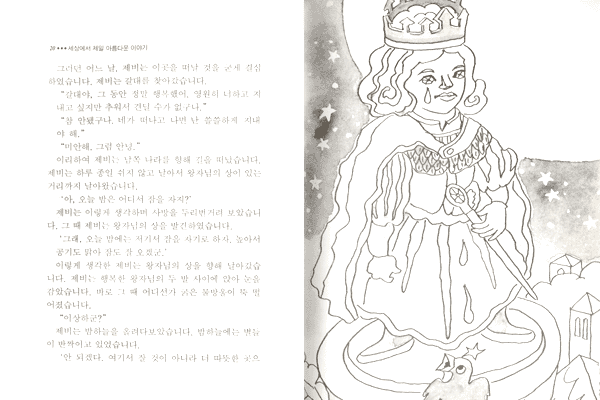 20 ●●● 세상에서 제일 아름다운 이야기
그러던 어느 날, 제비는 이곳을 떠날 것을 굳게 결심
하였습니다. 제비는 갈대를 찾아갔습니다.
“갈대야, 그 동안 정말 행복했어. 영원히 너하고 지
내고 싶지만 추워서 견딜 수가 없구나.”
“참 안됐구나. 네가 떠나고 나면 난 쓸쓸하게 지내
야 해.”
“미안해. 그럼 안녕.”
이리하여 제비는 남쪽 나라를 향해 길을 떠났습니다.
제비는 하루 종일 쉬지 않고 날아서 왕자님의 상이 있는
거리까지 날아왔습니다.
‘아, 오늘 밤은 어디서 잠을 자지?’
제비는 이렇게 생각하며 사방을 두리번거려 보았습니
다. 그 때 제비는 왕자님의 상을 발견하였습니다.
‘그래, 오늘 밤에는 저기서 잠을 자기로 하자. 높아서
공기도 맑아 잠도 잘 오겠군.’
이렇게 생각한 제비는 왕자님의 상을 향해 날아갔습
니다. 제비는 행복한 왕자님의 두 발 사이에 앉아 눈을
감았습니다. 바로 그 때 어디선가 굵은 물방울이 뚝 떨
어졌습니다.
“이상하군?”
제비는 밤하늘을 올려다보았습니다. 밤하늘에는 별들
이 반짝이고 있었습니다.
‘안 되겠다. 여기서 잘 것이 아니라 더 따뜻한 곳으